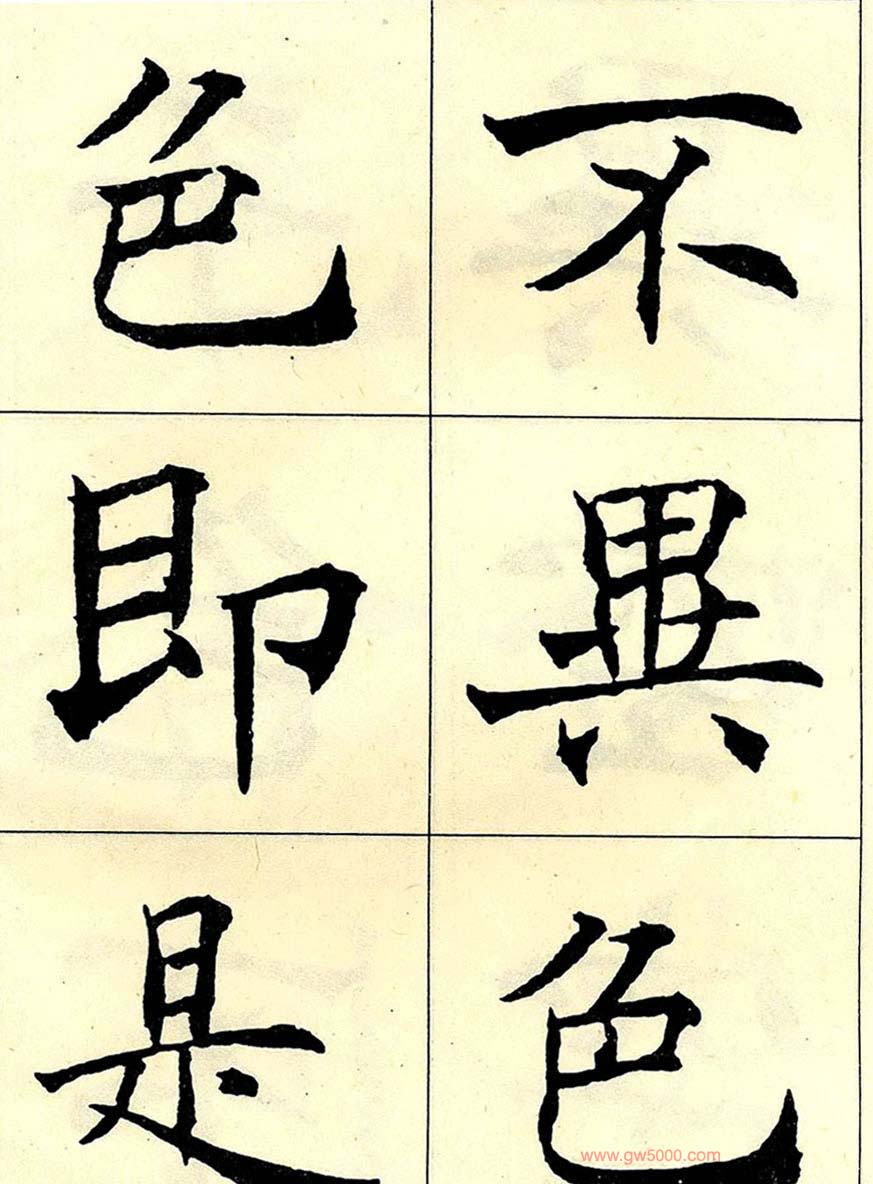 不異色
色即是
www.gw5000.com